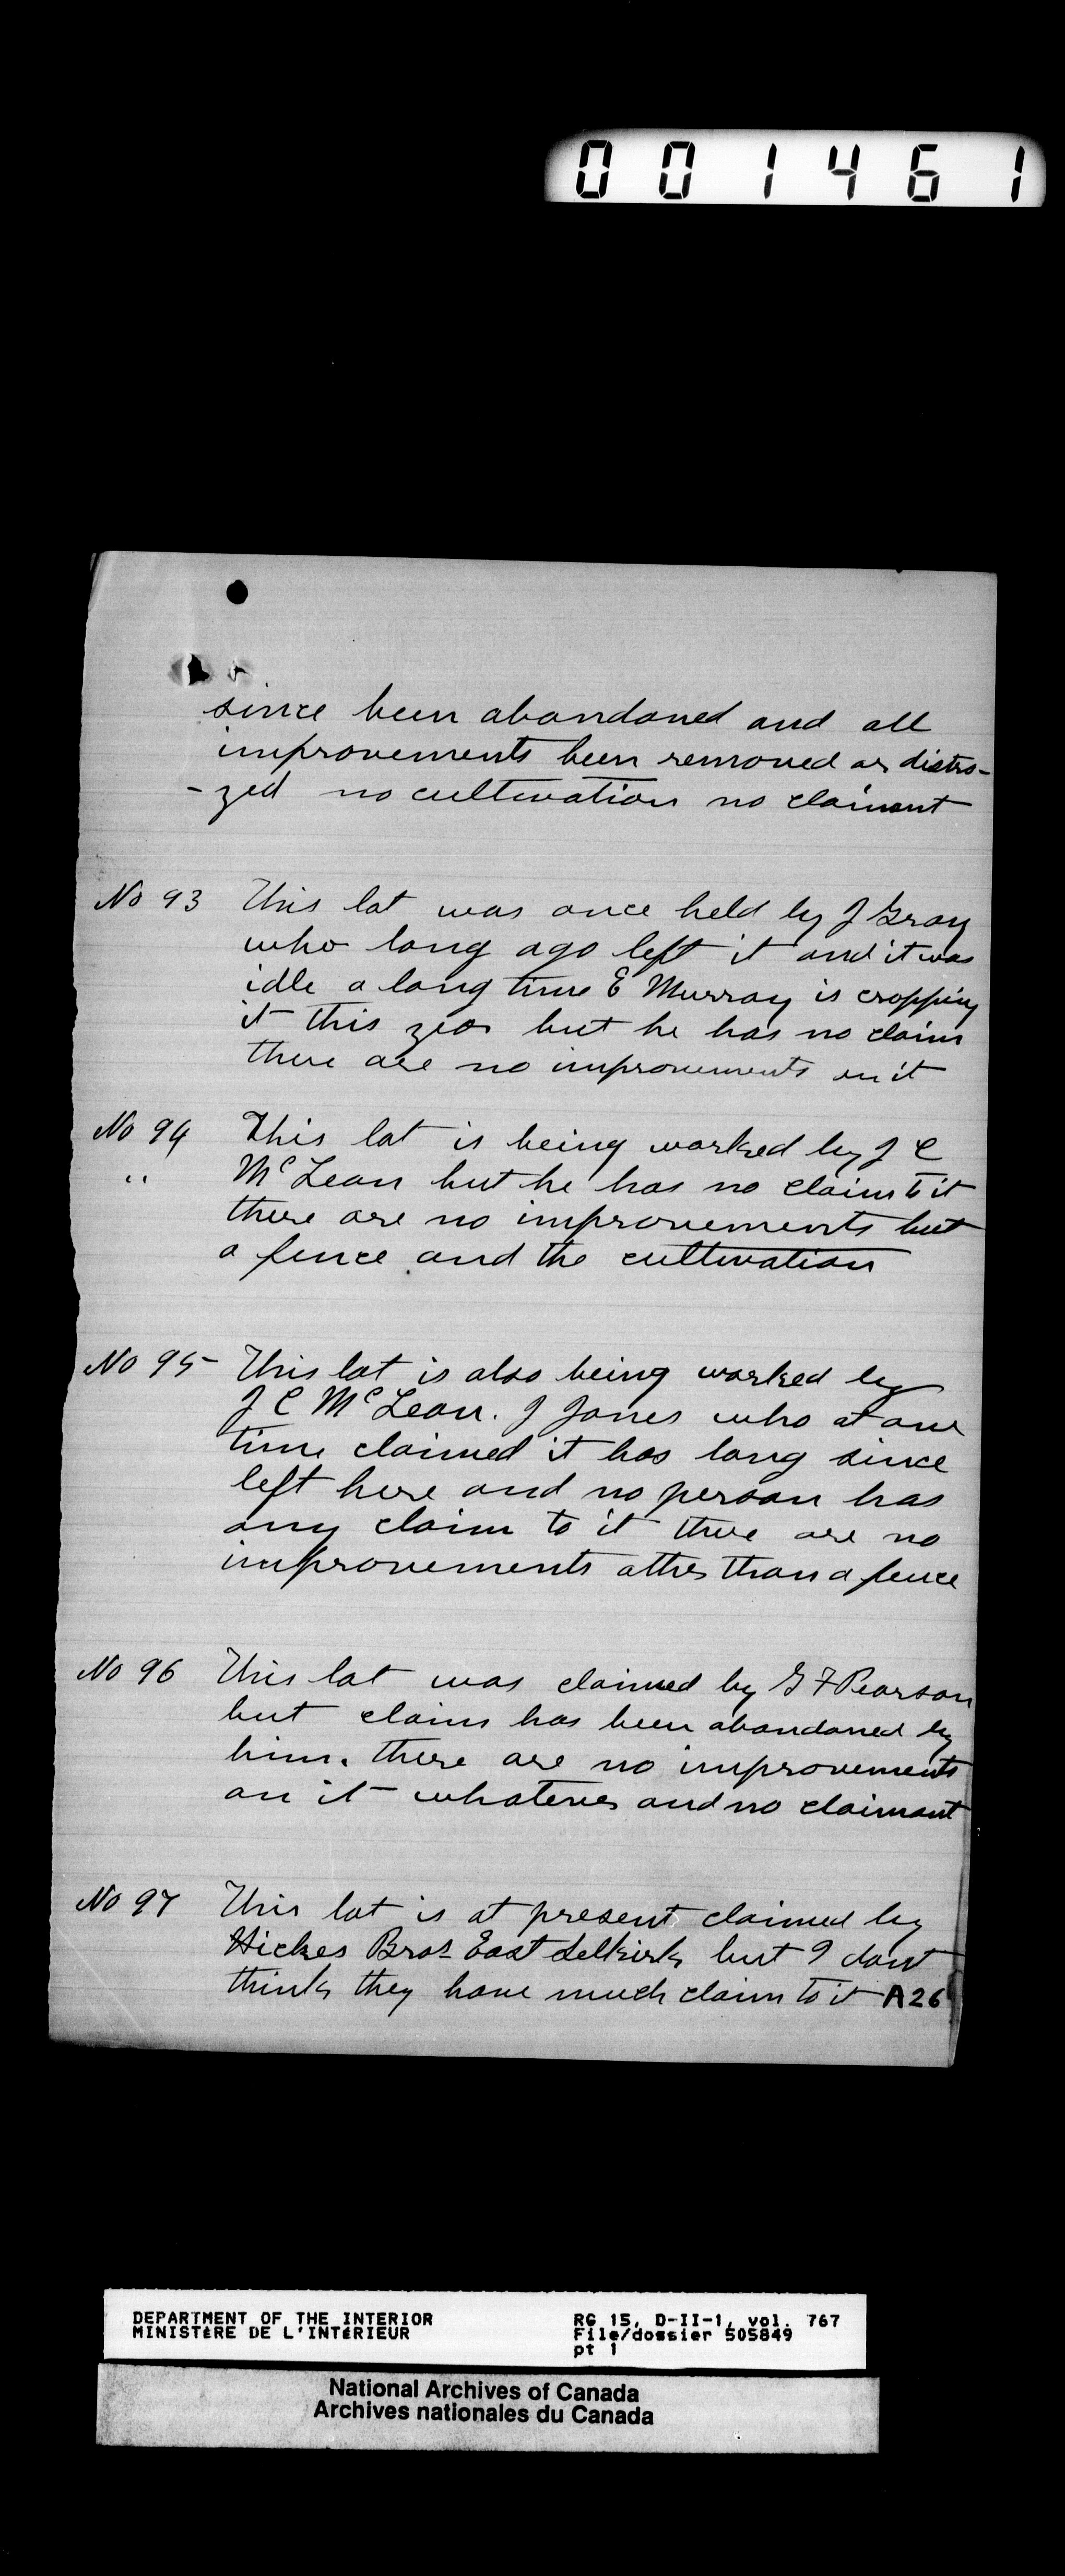 001461
since been abandoned and all
improvements been removed or distro-
-yed no cultivation no claimant
No 93 This lot was once held by J Gray
who long ago left it and it was
idle a long time E Murray is cropping
it this year but he has no claim
there are no improvements on it
No 94 This lot is being worked by J C
" McLean but he has no claim to it
there are no improvements but
a fence and the cultivation
No 95 This lot is also being worked by
J C McLean. J Jones who at one
time claimed it has long since
left here and no person has
any claim to it there are no
improvements other than a fence
No 96 This lot was claimed by G F Pearson
but claim has been abandoned by
him. there are no improvements
on it whatever and no claimant
No 97 This lot is at present claimed by
Hickes Bros East Selkirk but I dont
think they have much claim to it A26
DEPARTMENT OF THE INTERIOR
MINISTÈRE DE L'INTÉRIEUR
RG 15, D-II-1, vol. 767
File/dossier 505849
pt 1
National Archives of Canada
Archives nationales du Canada